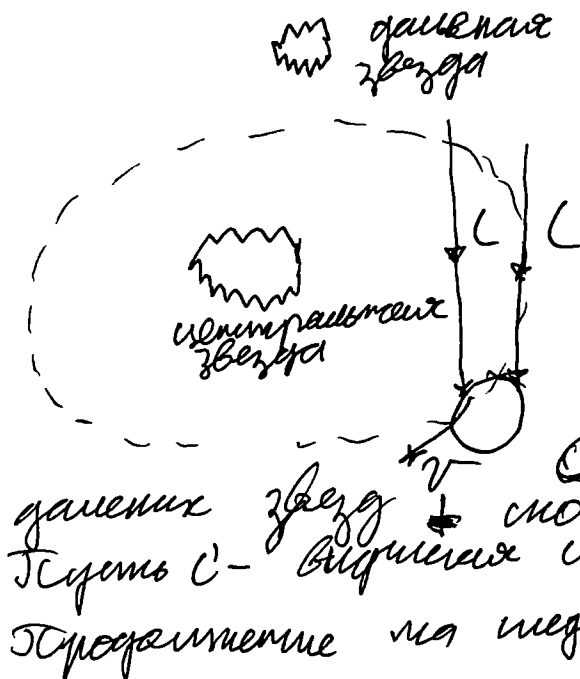 дальняя
звезда
C C
центральная
звезда
v
далеких звезд
Пусть C'- видимая
Продолжение на